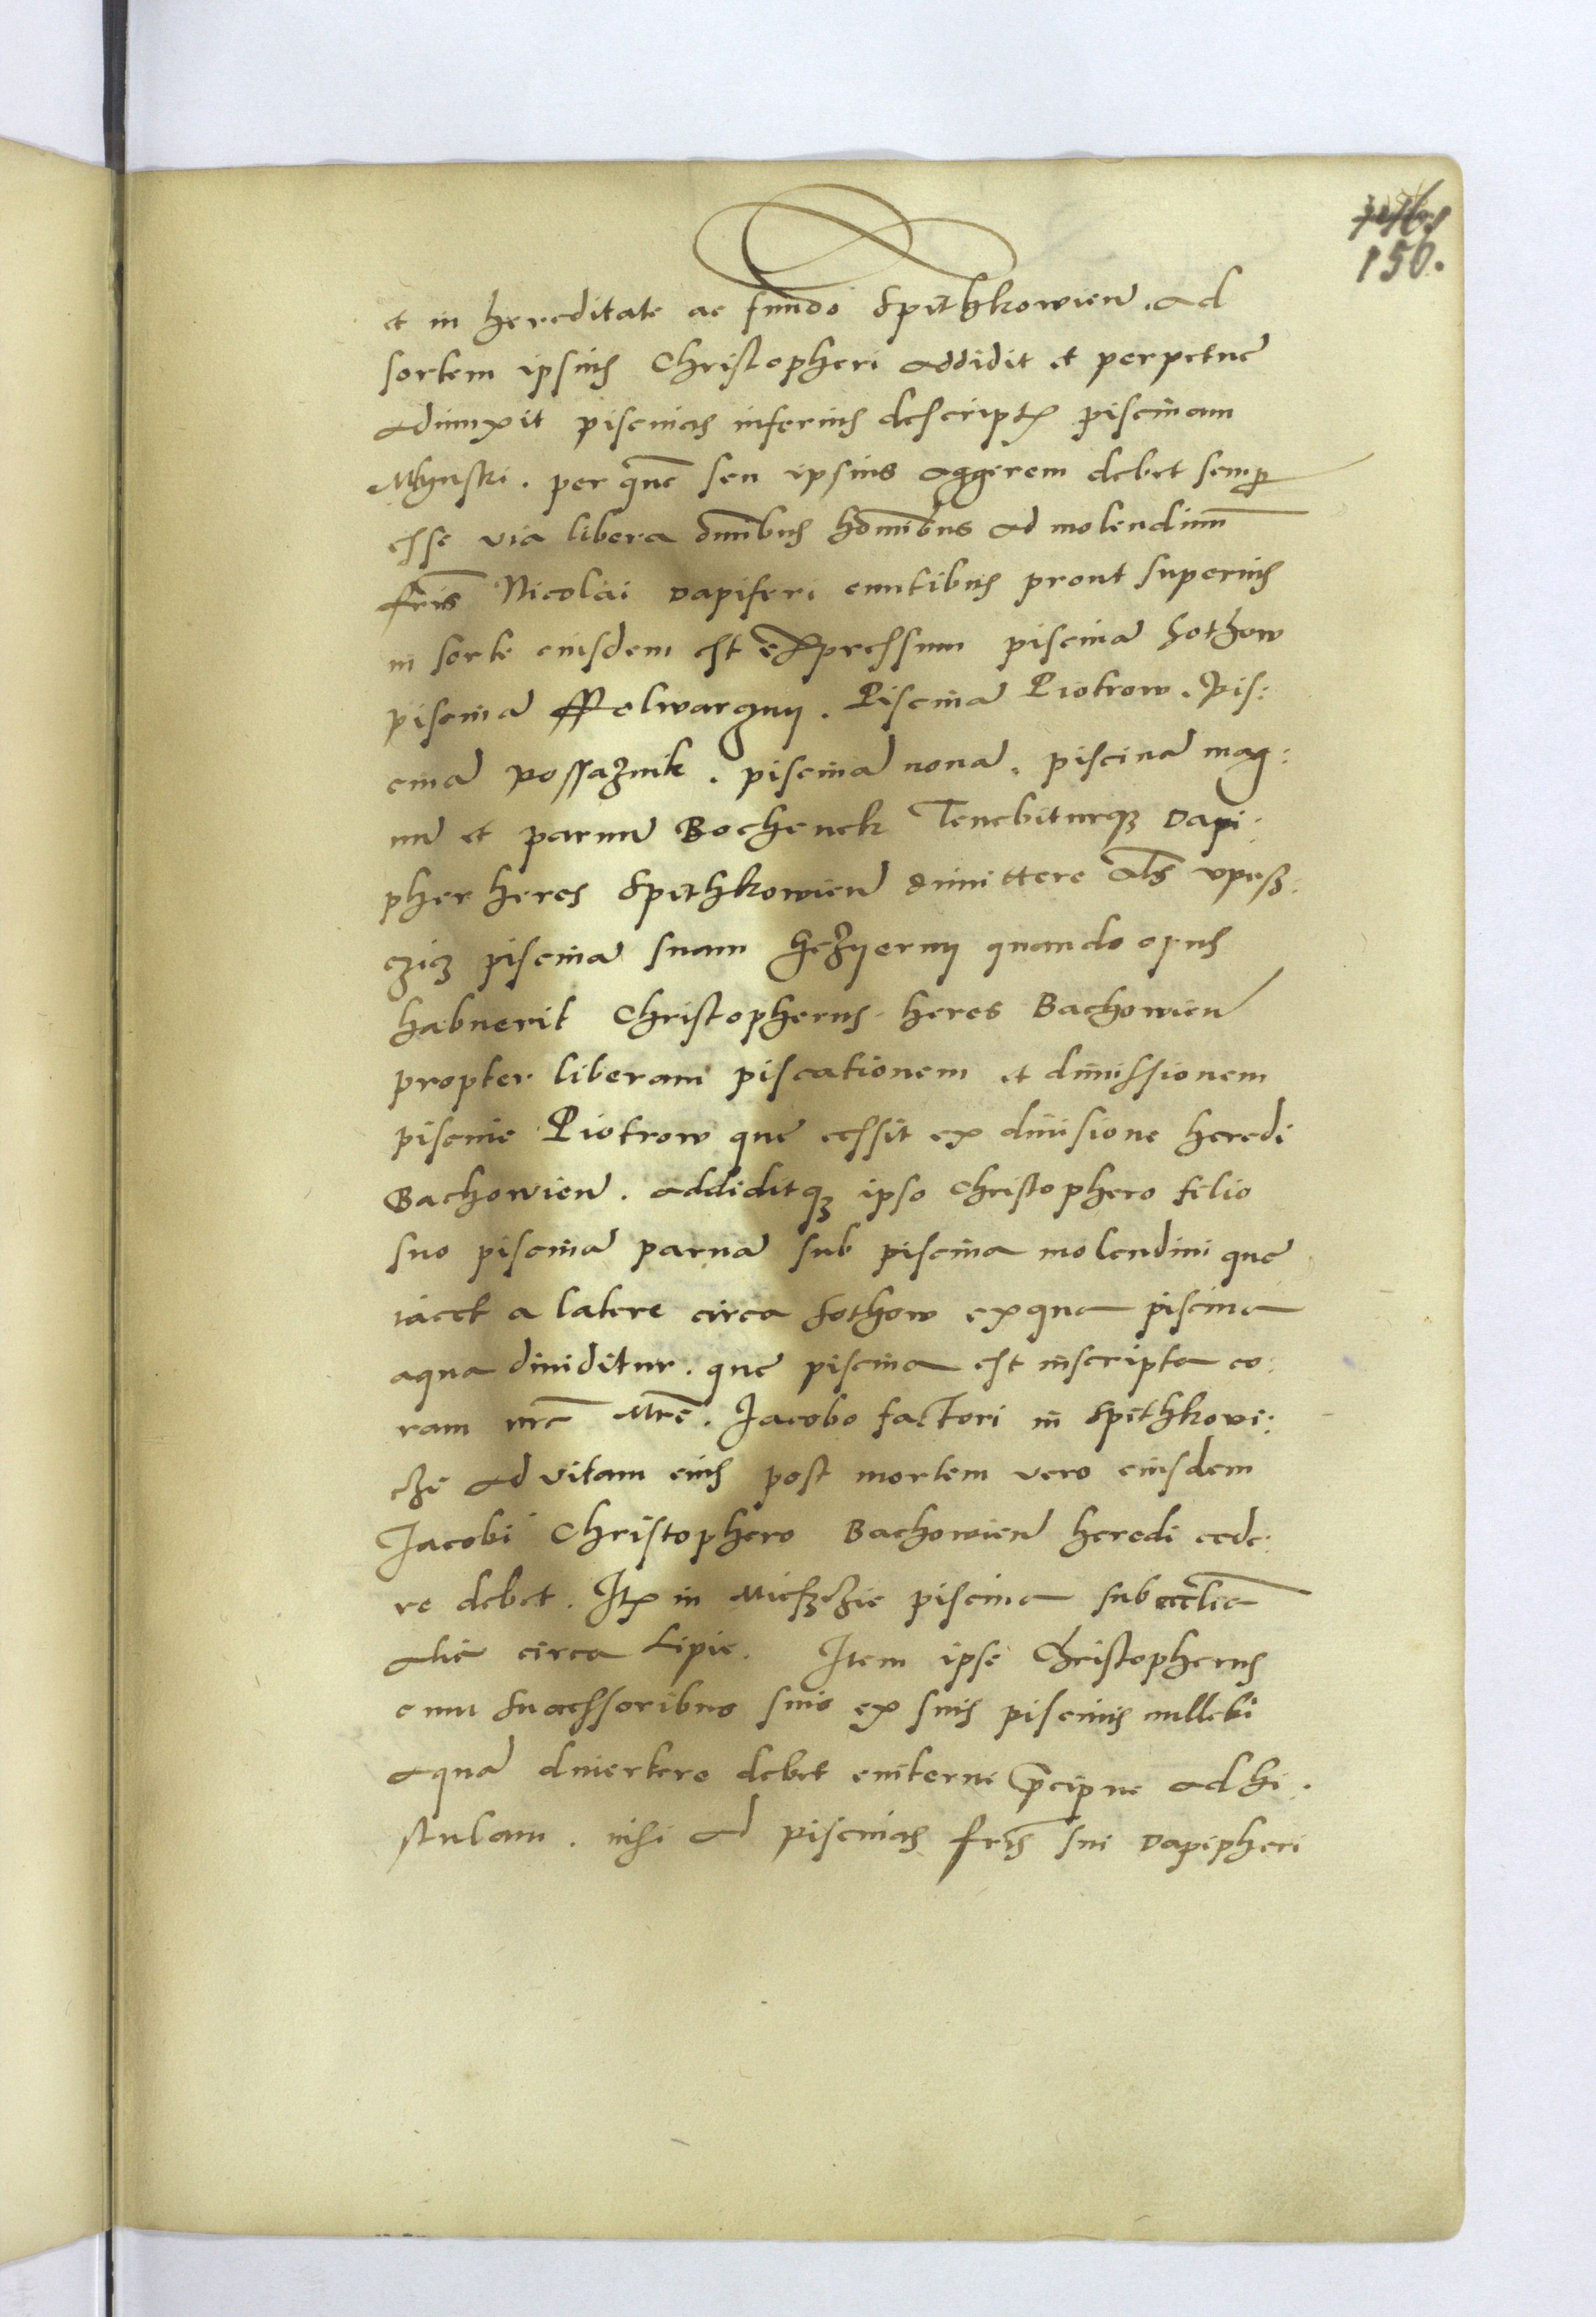 150.
et in hereditate ac fundo Spithkowien̄. ad
sortem ipsius Christopheri addidit et perpetue
adiunxit piscinas inferius descript̄ piscinam
Mlynski. per quē seu ipsius aggerem debet semp̄
esse via libera omībus homībus ad molendinū
fr̄is Nicolai dapiferi euntibus prout superius
in sorte eiusdem est expressum piscinā Sothow
piscinā ffolwargny. Piscinā Piotrow. pis:
cinā possaznik. piscinā nouā. piscinā mag:
nū et paruū Bochenek Tenebiturq3 dapi:
pher heres Spithkowien̄ dimittere al̄s vpusz:
czicz piscinā suam Gezyerny quando opus
habuerit Christopherus heres Bachowien̄
propter liberam piscationem et dimissionem
piscine Piotrow que cessit ex diuisione heredi
Bachowien̄. addiditq3 ipso Christophero filio
suo piscinā paruā sub piscina molendini que
iacet a latere circa Sothow ex qua piscina
aqua diuiditur. que piscina est inscripta co:
ram me Mr̄e. Jacobo factori in Spithkowi:
cze ad vitam eius post mortem vero eiusdem
Jacobi Christophero Bachowien̄ heredi cede:
re debet. Itē in Miesczcze piscina sub eccl̄ia
alia circa Lipie. Item ipse Christopherus
cum successoribus suis ex suis piscinis nullibi
aquā diuertere debet precipue ad hi:
stulam. nisi ad piscinas fr̄is sui dapipheri